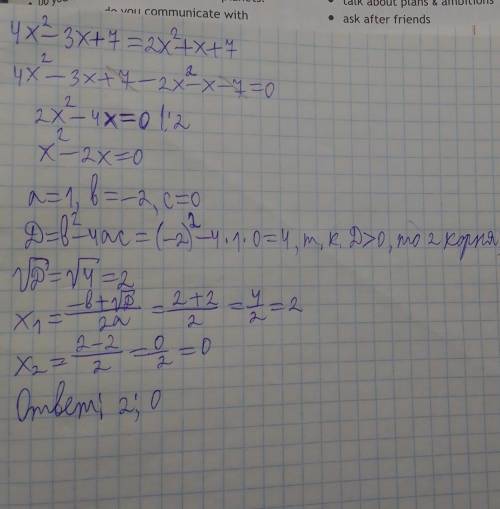 do you communicate with
• talk about plans & ambitions
• ask after friends
4x² - 3x + 7 = 2x² + x + 7
4x² - 3x + 7 - 2x² - x - 7 = 0
2x² - 4x = 0 |:2
x² - 2x = 0
a = 1, b = -2, c = 0
D = b² - 4ac = (-2)² - 4 · 1 · 0 = 4, т, к. D > 0, то 2 корня,
√D = √4 = 2
x₁ = (-b + √D)/2a = (2 + 2)/2 = 4/2 = 2
x₂ = (2 - 2)/2 = 0/2 = 0
Ответ: 2; 0